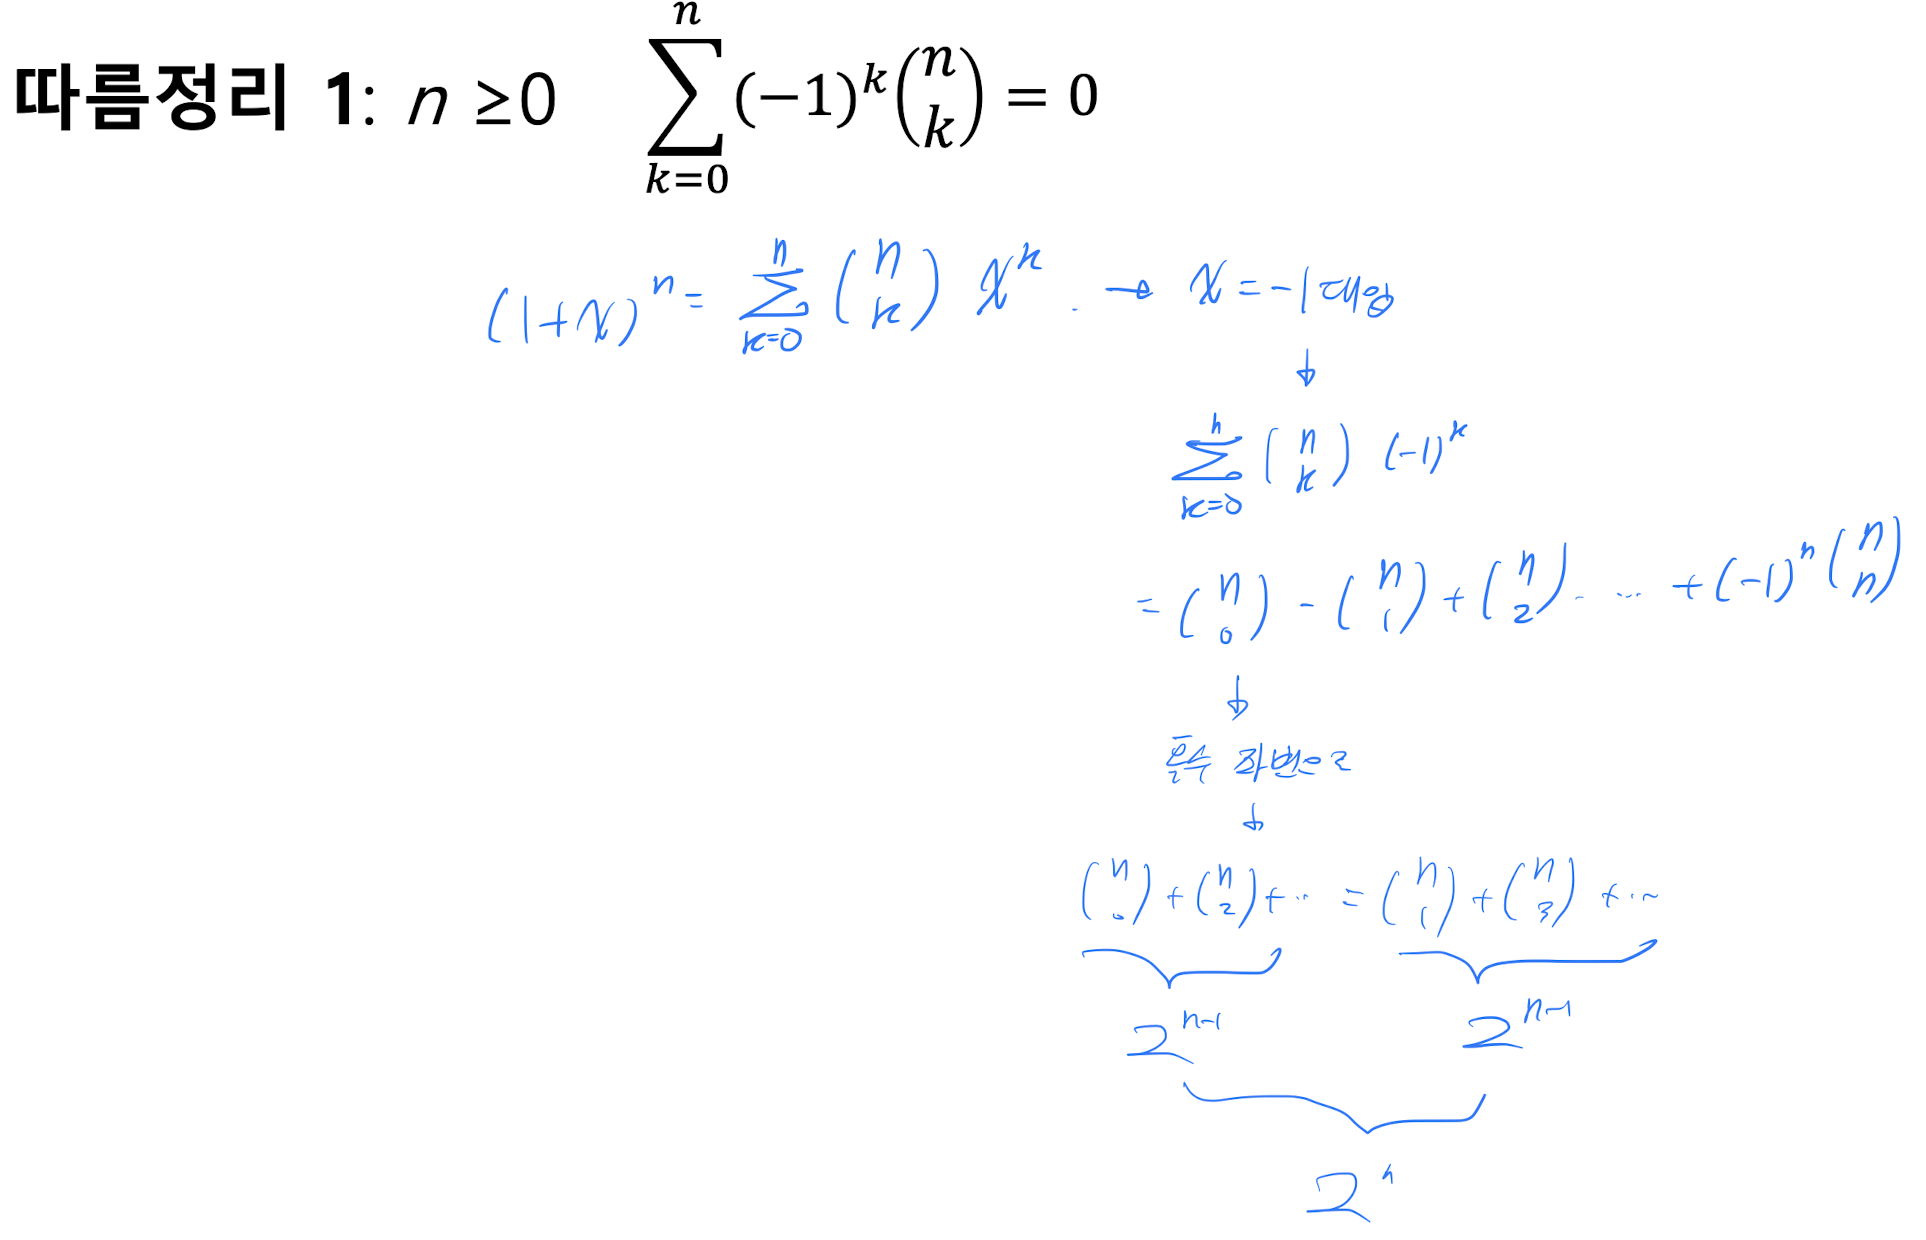 따름정리 1: n ≥0 \sum_{k=0}^{n} (-1)^k \binom{n}{k} = 0
(1+x)^n = \sum_{k=0}^{n} \binom{n}{k} x^k . → x = -1 대입
↓
\sum_{k=0}^{n} \binom{n}{k} (-1)^k
= \binom{n}{0} - \binom{n}{1} + \binom{n}{2} ..... + (-1)^n \binom{n}{n}
↓
홀수 좌변으로
↓
\binom{n}{0} + \binom{n}{2} + ... = \binom{n}{1} + \binom{n}{3} + ...
2^{n-1} 2^{n-1}
2^n